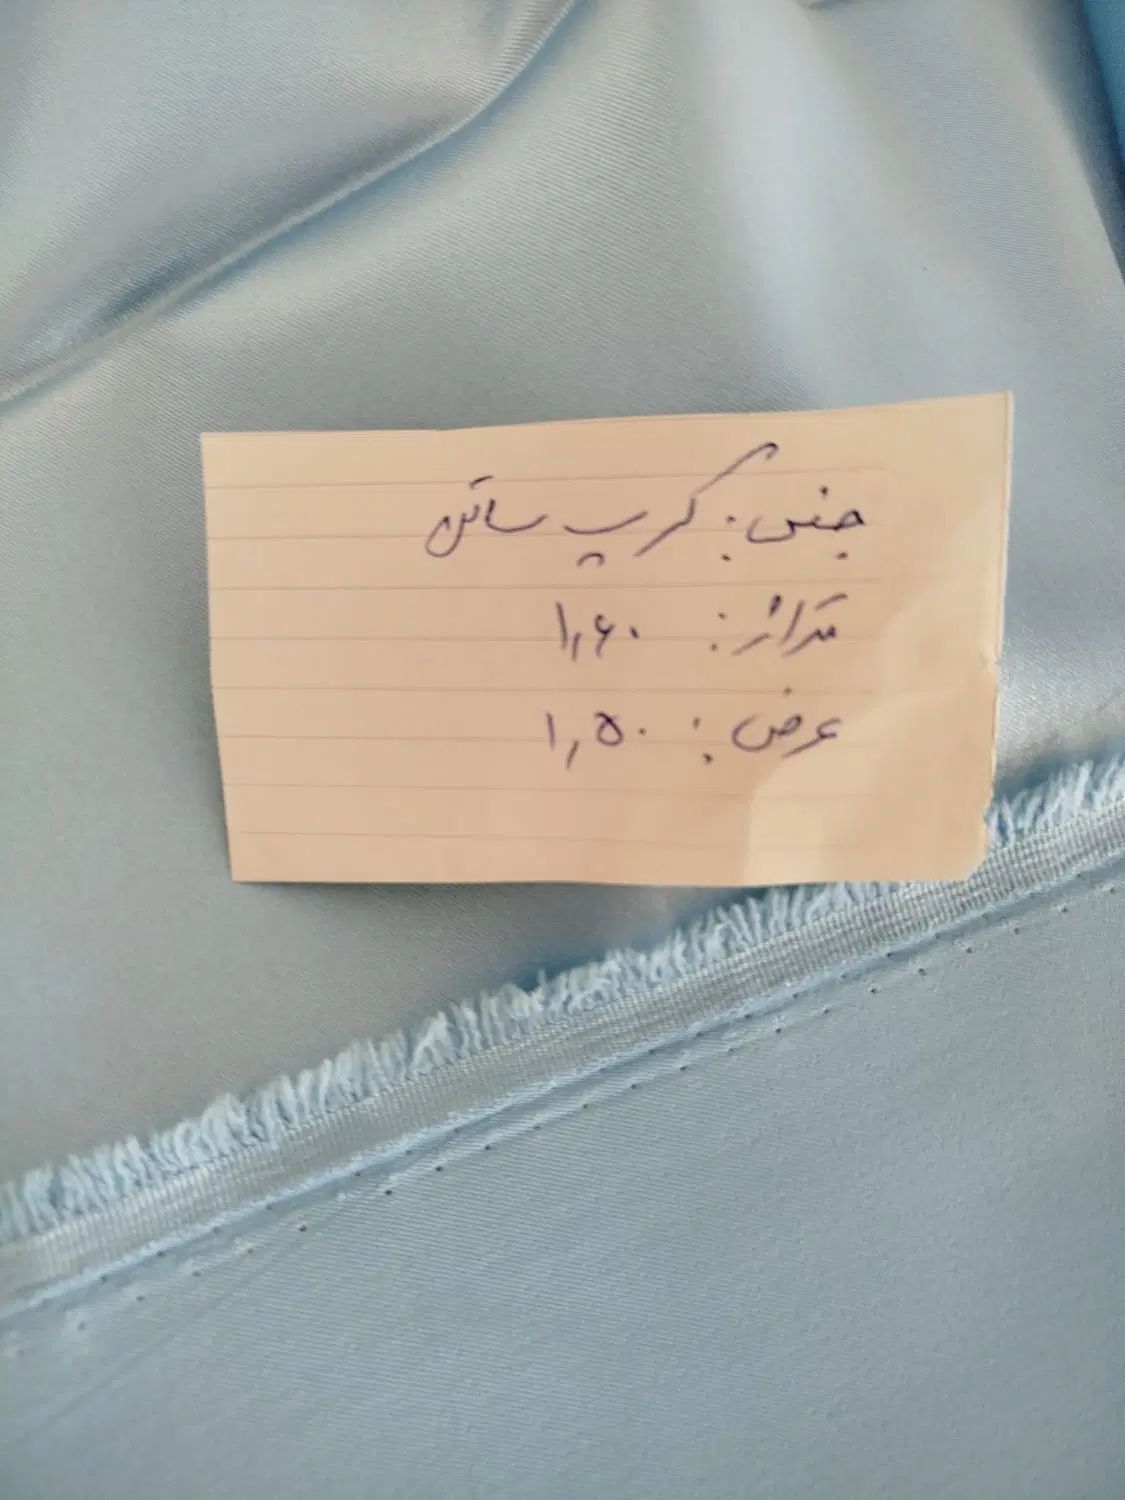 جنس: کرپ ساتن
متراژ: ۱٫۶۰
عرض: ۱٫۵۰